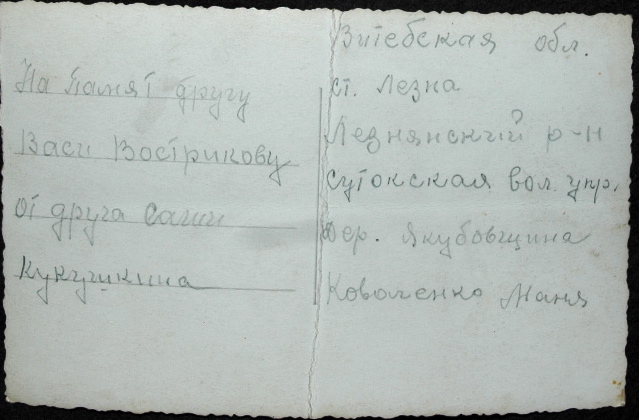 На памят другу
Васи Вострикову
от друга Саши
Кукушкина
Витебская обл.
ст. Лезна
Лезнянский р-н
Сутокская вол. упр.
дер. Якубовщина
Коваленко Маня